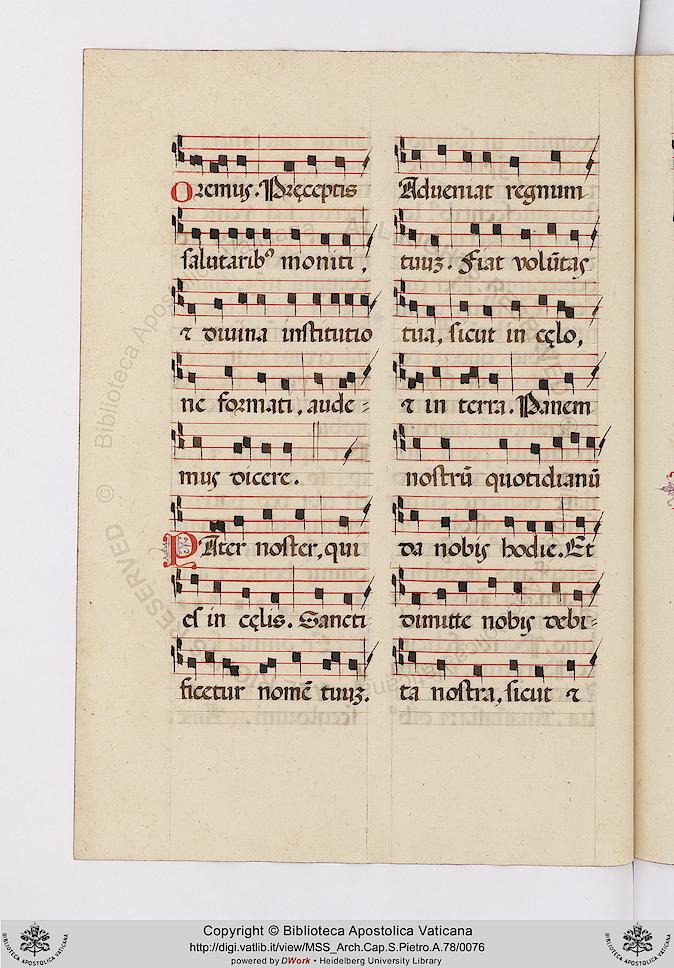 Oremus. Pręceptis
salutarib⁹ moniti,
⁊ diuina institutio
ne formati, aude=
mus dicere.
PAter noster, qui
es in cęlis. Sancti=
ficetur nomē tuuȝ.
Adueniat regnum
tuuȝ. Fiat volūtas
tua, sicut in cęlo,
⁊ in terra. Panem
nostrū quotidianū
da nobis hodie. Et
dimitte nobis debi=
ta nostra, sicut ⁊
© Biblioteca Apostolica Vaticana ALL RIGHTS RESERVED
Copyright © Biblioteca Apostolica Vaticana
http://digi.vatlib.it/view/MSS_Arch.Cap.S.Pietro.A.78/0076
powered by DWork • Heidelberg University Library
BIBLIOTECA APOSTOLICA VATICANA
BIBLIOTECA APOSTOLICA VATICANA